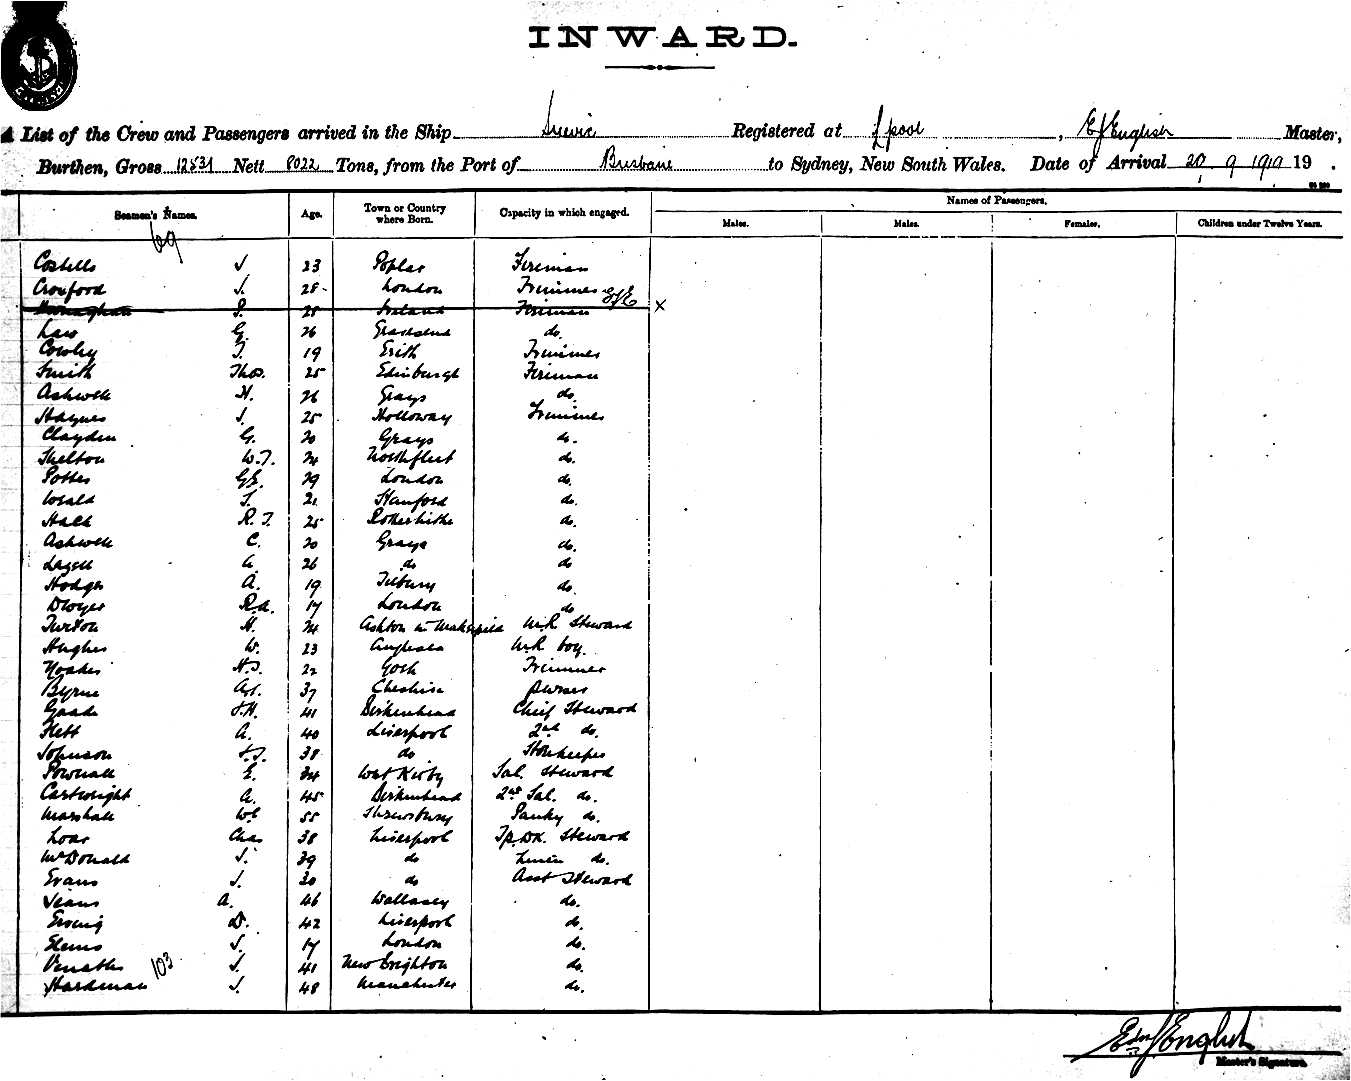 INWARD.
A List of the Crew and Passengers arrived in the Ship Suevic Registered at L'pool, E J English Master,
Burthen, Gross 12531 Nett 8022 Tons, from the Port of Brisbane to Sydney, New South Wales. Date of Arrival 20 9 1919 19 .
Seamen's Names. Age. Town or Country where Born. Capacity in which engaged. Names of Passengers.
Males. Males. Females. Children under Twelve Years.
69
Costello J 23 Poplar Fireman
Crouford J. 28 London Trimmer
Monaghan P. 25 Ireland Fireman EJE x
Law G. 26 Gravesend do.
Cowley T. 19 Erith Trimmer
Smith Thos. 25 Edinburgh Fireman
Ashwell H. 26 Grays do.
Haynes J. 25 Holloway Trimmer
Clayden G. 20 Grays do.
Shelton W.T. 24 Northfleet do.
Potter GE. 29 London do.
Weald T. 21 Stanford do.
Hall R.T. 25 Rotherhithe do.
Ashwell C. 20 Grays do.
Lazell A. 26 do do
Hodges A. 19 Tilbury do.
Dwyer R.A. 17 London do
Turton H. 24 Ashton in Makerfield M.R Steward
Hughes W. 23 Anglesea M.R boy.
Noakes H.J. 22 Trimmer
Byrne 37 Cheshire Purser
J.H. 41 Birkenhead Chief Steward
Flett A. 40 Liverpool 2nd do.
Johnson J.J. 38 do Storekeeper
Pownall E. 34 West Kirby Sal. Steward
Cartwright A. 45 Birkenhead 2nd Sal. do.
Marshall Wm 55 Shrewsbury Pantry do.
Loar Chas 38 Liverpool Tp.Dk. Steward
McDonald J. 39 do Linen do.
Evans J. 30 do Asst Steward
Jeans A. 46 Wallasey do.
Erving D. 42 Liverpool do.
J. 17 London do.
Venables J. 41 New Brighton do.
103
Hardman J. 48 Manchester do.
Edw J English
Master's Signature.